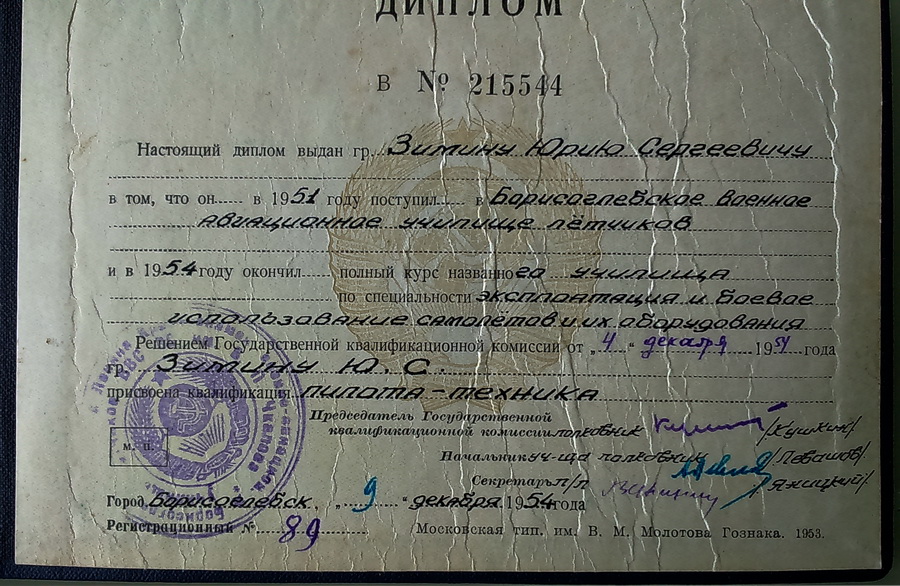 ДИПЛОМ
В № 215544
Настоящий диплом выдан гр. Зимину Юрию Сергеевичу
в том, что он в 1951 году поступил в Борисоглебское военное
авиационное училище лётчиков
и в 1954 году окончил полный курс названного училища
по специальности эксплоатация и боевое
использование самолётов и их оборудования
Решением Государственной квалификационной комиссии от „4“ декабря 1954 года
гр. Зимину Ю. С.
присвоена квалификация пилота-техника
Председатель Государственной
квалификационной комиссии полковник /Кушкин/
Начальник уч-ща полковник /Левашов/
Секретарь п/п /Яницкий/
М. П.
Город Борисоглебск, „9“ декабря 1954 года
Регистрационный № 89
Московская тип. им. В. М. Молотова Гознака. 1953.